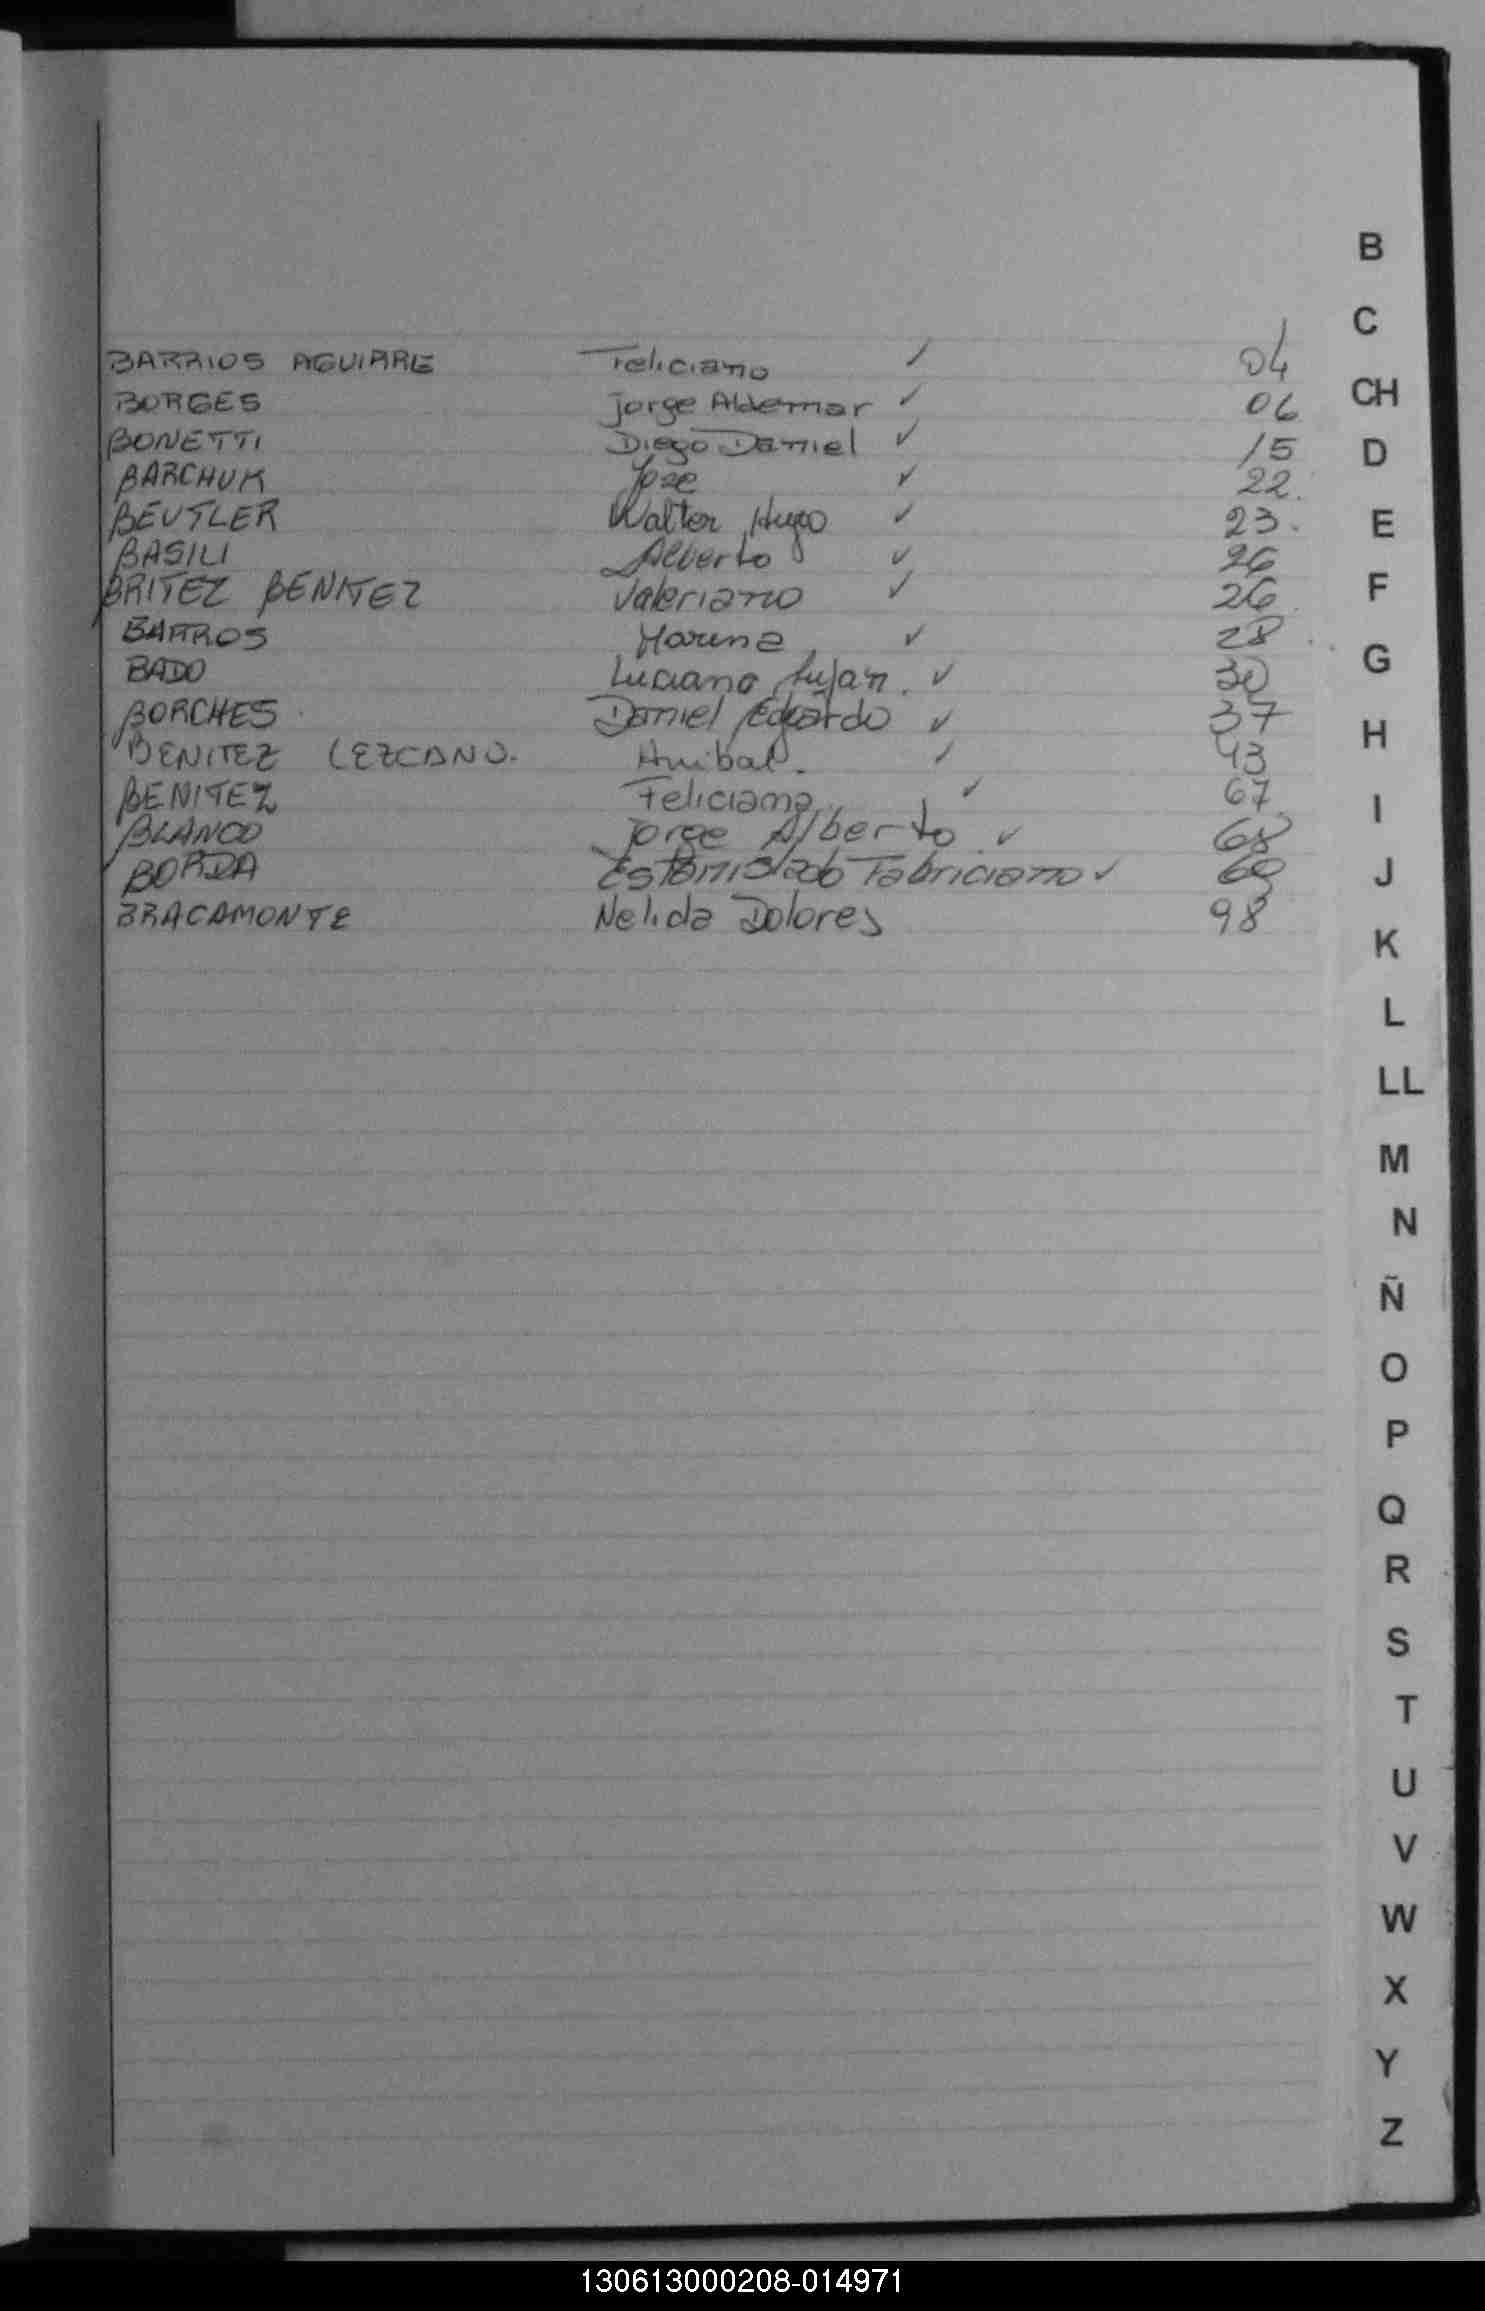 B
C
BARRIOS AGUIRRE Feliciano ✓ 04
CH
BORGES Jorge Aldemar ✓ 06
BONETTI Diego Daniel ✓ 15
D
BARCHUK Jose ✓ 22.
BEUTLER Walter Hugo ✓ 23.
E
BASILI Alberto ✓ 26
BRITEZ BENITEZ Valeriano ✓ 26
F
BARROS Marina ✓ 28
G
BADO Luciano Lujan. ✓ 30
BORCHES Daniel Edgardo ✓ 37
H
BENITEZ LEZCANO. Anibal. ✓ 43
BENITEZ Feliciana ✓ 67
I
BLANCO Jorge Alberto ✓ 68
BORDA Estanislado Fabriciano ✓
J
BRACAMONTE Nelida Dolores 98
K
L
LL
M
N
Ñ
O
P
Q
R
S
T
U
V
W
X
Y
Z
130613000208-014971